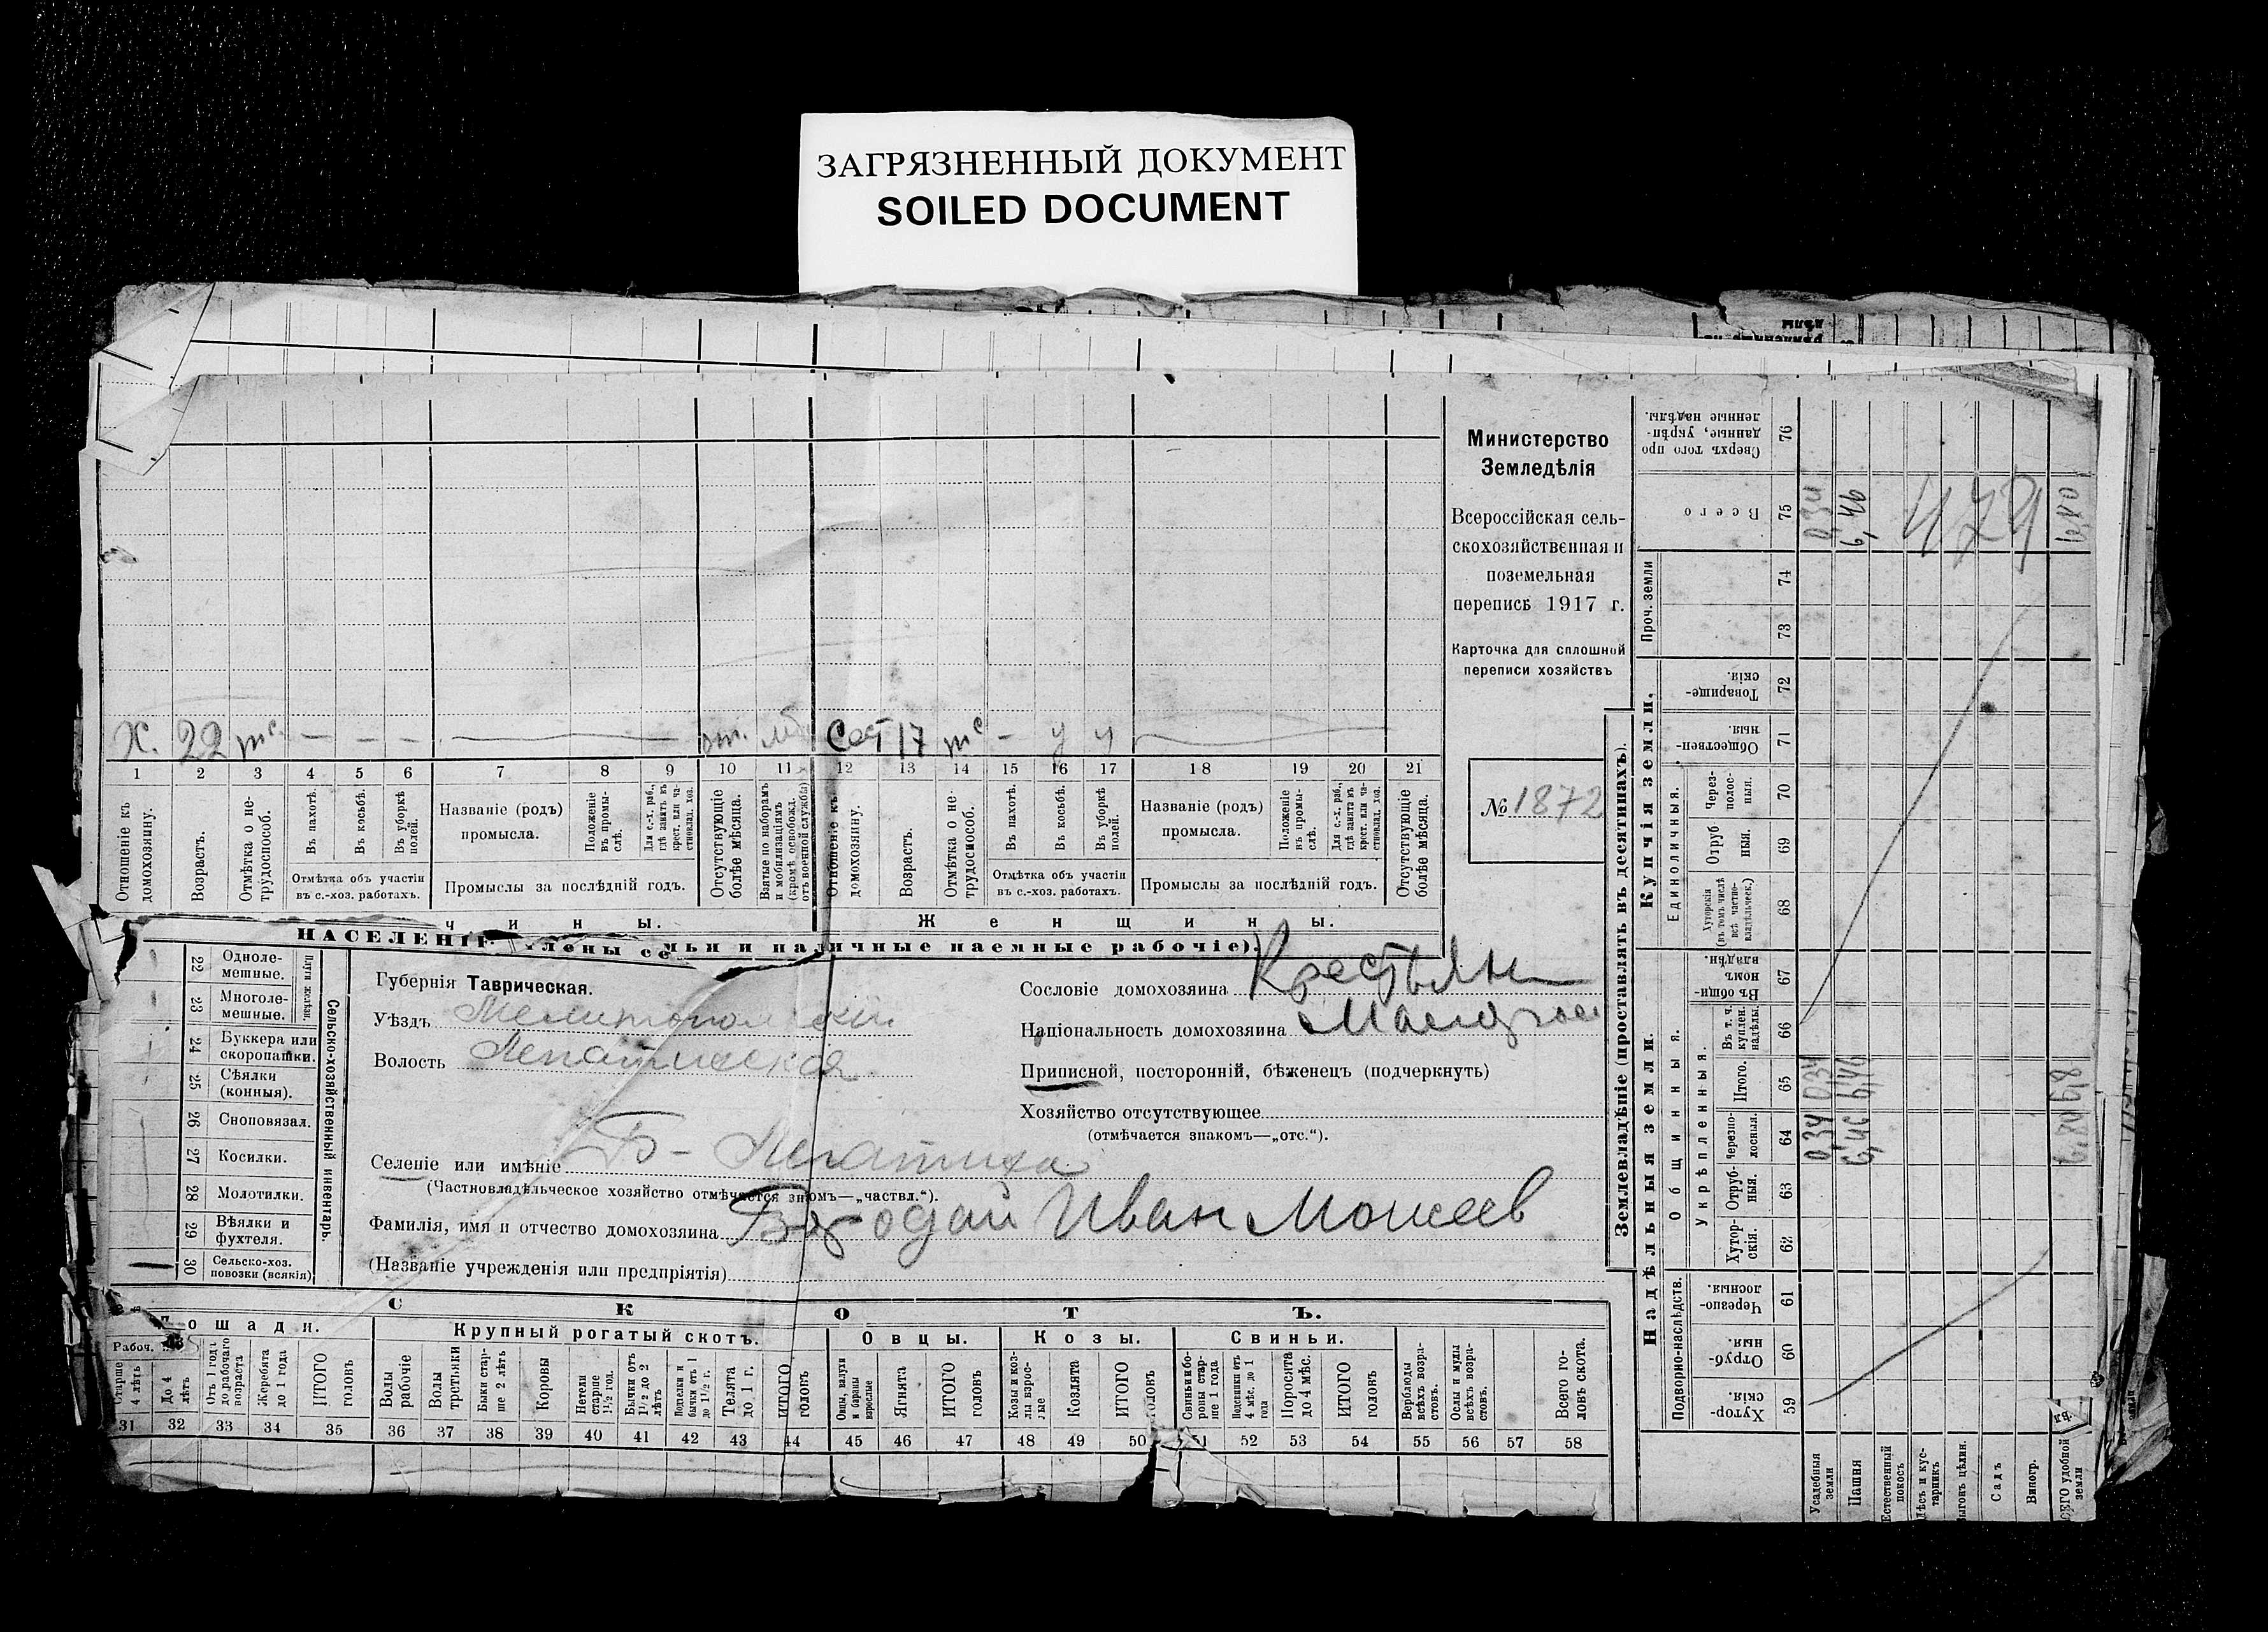 ЗАГРЯЗНЕННЫЙ ДОКУМЕНТ
SOILED DOCUMENT
Х. 22 – – – от. Сест 17 – у у
1 2 3 4 5 6 7 8 9 10 11 12 13 14 15 16 17 18 19 20 21
Отношеніе къ домохозяину.
Возрастъ.
Отмѣтка о нетрудоспособ.
Въ пахотѣ.
Въ косьбѣ.
Въ уборкѣ полей.
Отмѣтка объ участіи
въ с.-хоз. работахъ.
Названіе (родъ)
промысла.
Положеніе въ промыслѣ.
Для с.-х. раб., гдѣ занятъ въ крест. или частновлад. хоз.
Промыслы за послѣдній годъ.
Отсутствующіе болѣе мѣсяца.
Взятые по наборамъ и мобилизаціямъ (кромѣ освобожд. отъ военной службы)
Отношеніе къ домохозяину.
Возрастъ.
Отмѣтка о нетрудоспособ.
Въ пахотѣ.
Въ косьбѣ.
Въ уборкѣ полей.
Отмѣтка объ участіи
въ с.-хоз. работахъ.
Названіе (родъ)
промысла.
Положеніе въ промыслѣ.
Для с.-х. раб., гдѣ занята въ крест. или частновлад. хоз.
Промыслы за послѣдній годъ.
Отсутствующіе болѣе мѣсяца.
чины.
Женщины.
НАСЕЛЕНІЕ члены семьи и наличные наемные рабочіе).
Министерство
Земледѣлія
Всероссійская сель-
скохозяйственная и
поземельная
перепись 1917 г.
Карточка для сплошной
переписи хозяйствъ
№ 1872
22 Одноле-
мешные.
23 Многоле-
мешные.
Плуги желѣзн.
24 Буккера или
скоропашки.
25 Сѣялки
(конныя).
26 Сноповязал.
27 Косилки.
28 Молотилки.
29 Вѣялки и
фухтеля.
30 Сельско-хоз.
повозки (всякія)
Сельско-хозяйственный инвентарь.
Губернія Таврическая.
Уѣздъ Мелитопольскій
Волость Лепатихская
Селеніе или имѣніе Б-Лепатиха
(Частновладѣльческое хозяйство отмѣчается знкомъ—„частвл.“).
Фамилія, имя и отчество домохозяина Иван Моисеев
(Названіе учрежденія или предпріятія)
Сословіе домохозяина Крестьян
Національность домохозяина Малорос
Приписной, посторонній, бѣженецъ (подчеркнуть)
Хозяйство отсутствующее
(отмѣчается знакомъ—„отс.“).
СКОТЪ.
Лошади.
Рабоч.
Старше 4 лѣтъ
До 4 лѣтъ
Отъ 1 года до рабочаго возраста
Жеребята до 1 года
ИТОГО головъ
Крупный рогатый скотъ.
Волы рабочіе
Волы третьяки
Быки старше 2 лѣтъ
Коровы
Нетели старше 1½ год.
Бычки отъ 1½ до 2 лѣтъ
Подтелки и бычки отъ 1 до 1½ г.
Телята до 1 г.
ИТОГО головъ
Овцы.
Овцы, валухи и бараны взрослые
Ягнята
ИТОГО головъ
Козы.
Козы и козлы взрослые
Козлята
ИТОГО головъ
Свиньи.
Свиньи и боровы старше 1 года
Подсвинки отъ 4 мѣс. до 1 года
Поросята до 4 мѣс.
ИТОГО головъ
Верблюды всѣхъ возрастовъ.
Ослы и мулы всѣхъ возрастовъ.
Всего головъ скота.
31 32 33 34 35 36 37 38 39 40 41 42 43 44 45 46 47 48 49 50 51 52 53 54 55 56 57 58
Землевладѣніе (проставлять въ десятинахъ).
Надѣльныя земли.
Подворно-наслѣдств.
Хуторскія. 59
Отрубныя. 60
Черезполосныя. 61
Общинныя.
Укрѣпленныя.
Хуторскія. 62
Отрубныя. 63
Черезполосныя. 64
Итого. 65
Въ т. ч. куплен. надѣлы. 66
Въ общинномъ владѣн. 67
Купчія земли.
Единоличныя.
Хуторскія (въ томъ числѣ всѣ частновладѣльческ.) 68
Отрубныя. 69
Черезполосныя. 70
Общественныя. 71
Товарищескія. 72
Проч. земли
73 74
Всего 75
Сверхъ того проданные, укрѣпленные надѣлы. 76
Усадебныя земли 0,34 0,34 0,34
Пашня 6,46 6,46 6,46
Естественный покосъ
Лѣсъ и кустарникъ
Выгонъ цѣлин.
Садъ
Виногр.
ВСЕГО удобной земли 6,80 6,8 6,80